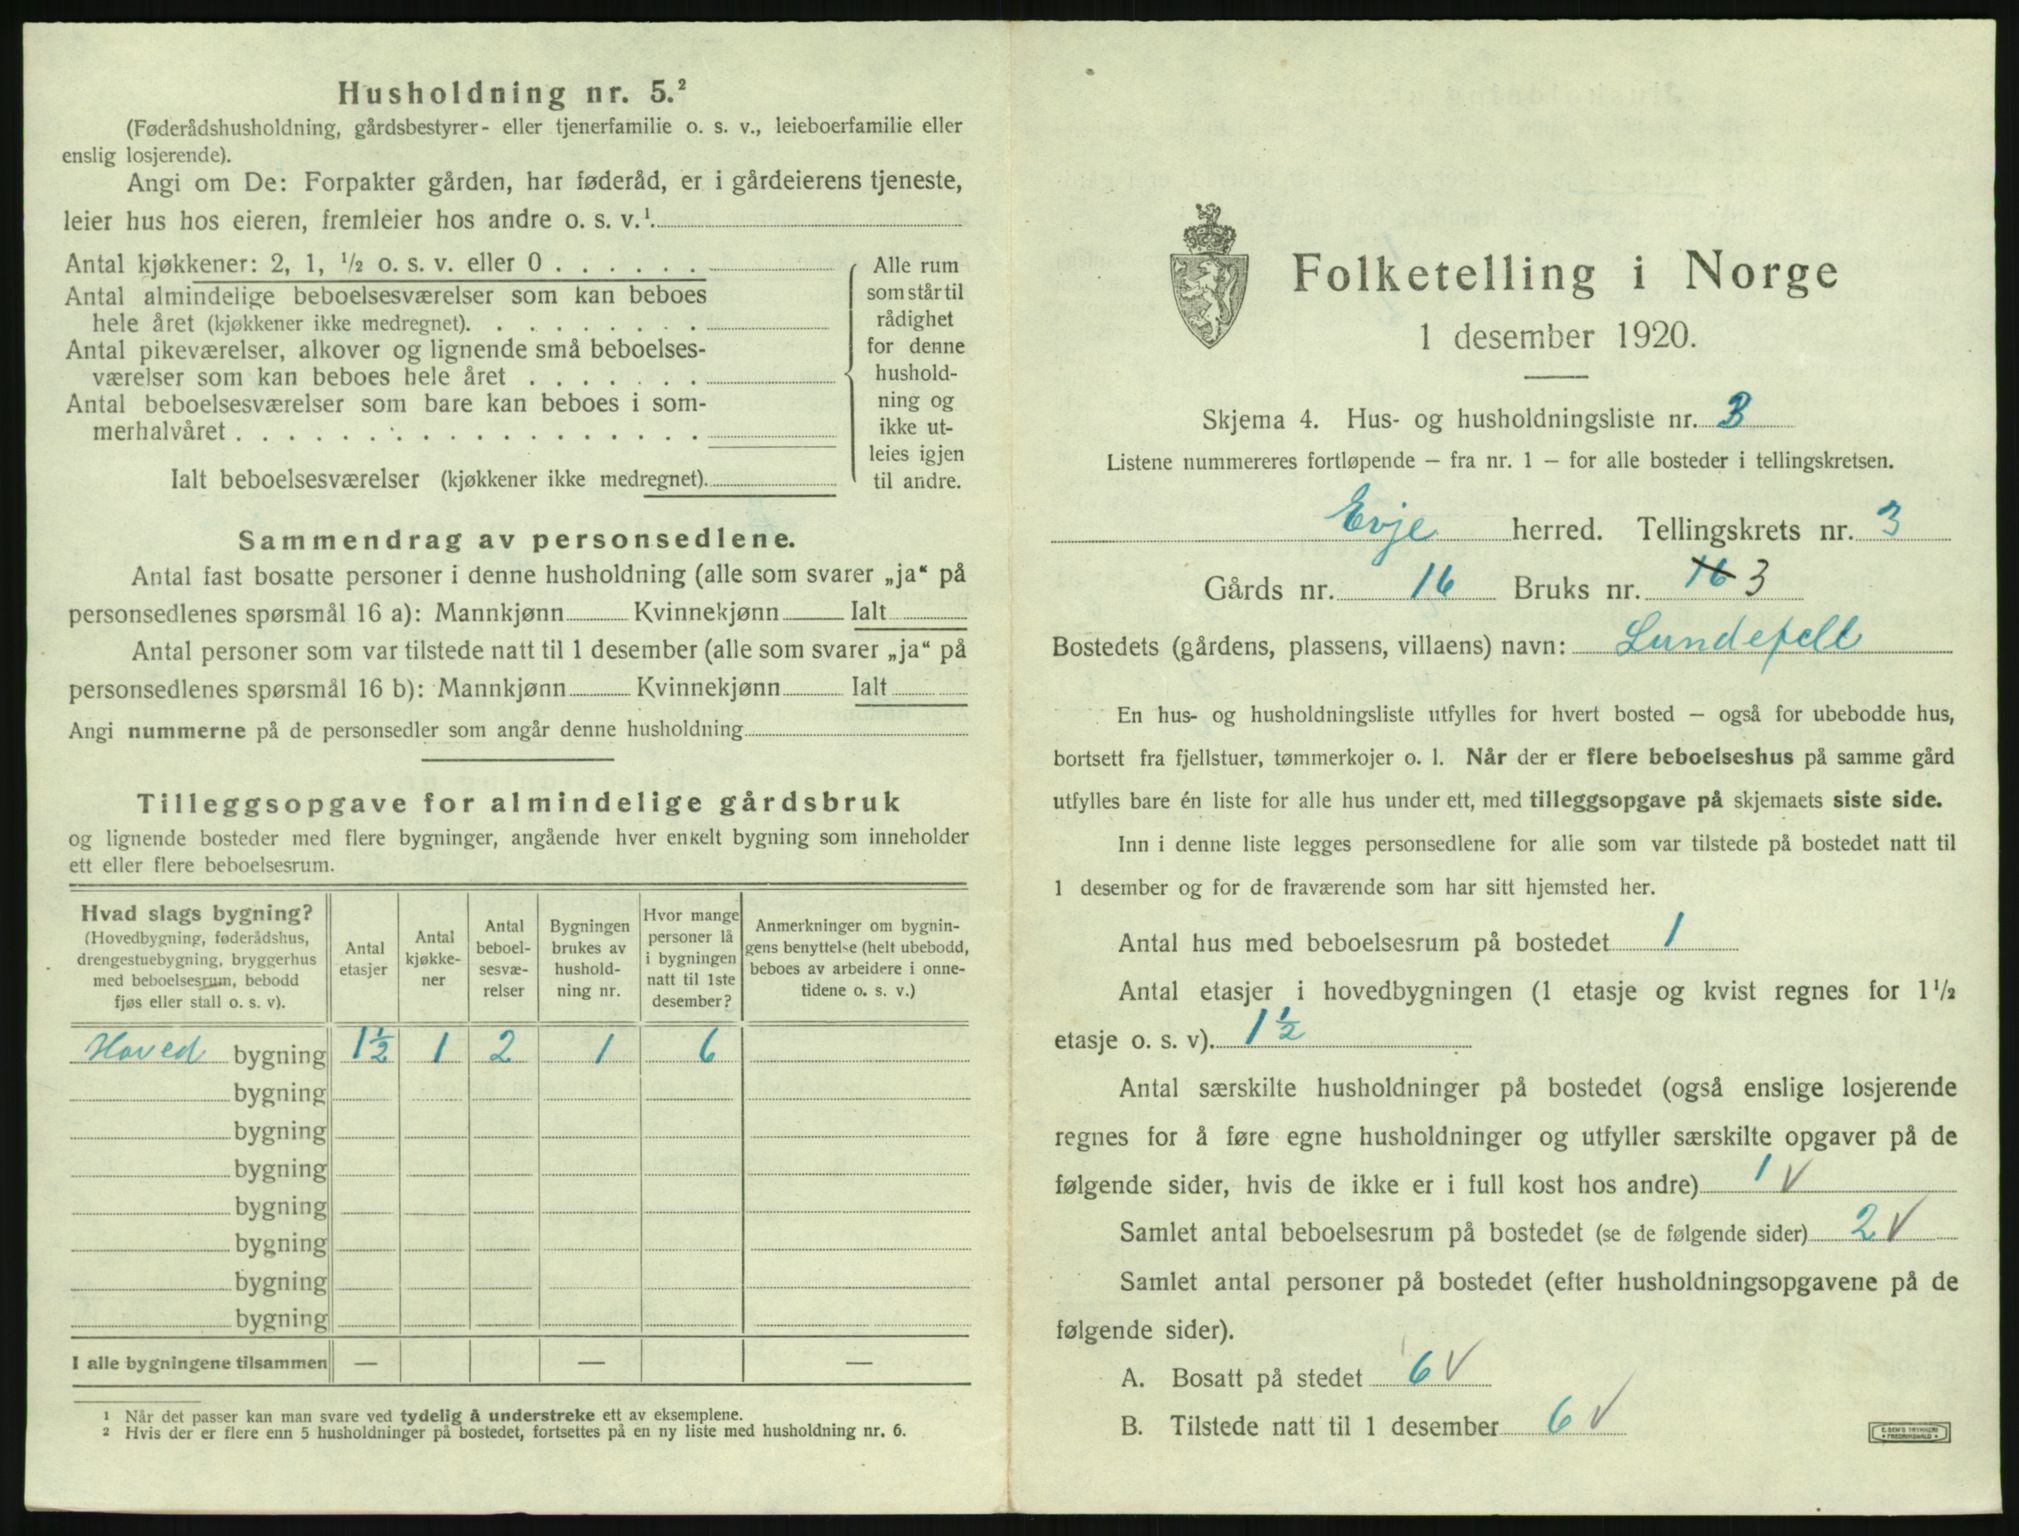 Husholdning nr. 5.²
(Føderådshusholdning, gårdsbestyrer- eller tjenerfamilie o. s. v., leieboerfamilie eller
enslig losjerende).
Angi om De: Forpakter gården, har føderåd, er i gårdeierens tjeneste,
leier hus hos eieren, fremleier hos andre o. s. v.¹
Antal kjøkkener: 2, 1, ½ o. s. v. eller 0 . . . . . .
Antal almindelige beboelsesværelser som kan beboes
hele året (kjøkkener ikke medregnet). . . . . . . . .
Antal pikeværelser, alkover og lignende små beboelses-
værelser som kan beboes hele året . . . . . . .
Antal beboelsesværelser som bare kan beboes i som-
merhalvåret . . . . . . . . . . . . . . . . . .
Ialt beboelsesværelser (kjøkkener ikke medregnet).
Alle rum
som står til
rådighet
for denne
hushold-
ning og
ikke ut-
leies igjen
til andre.
Sammendrag av personsedlene.
Antal fast bosatte personer i denne husholdning (alle som svarer „ja“ på
personsedlenes spørsmål 16 a): Mannkjønn Kvinnekjønn Ialt
Antal personer som var tilstede natt til 1 desember (alle som svarer „ja“ på
personsedlenes spørsmål 16 b): Mannkjønn Kvinnekjønn Ialt
Angi nummerne på de personsedler som angår denne husholdning
Tilleggsopgave for almindelige gårdsbruk
og lignende bosteder med flere bygninger, angående hver enkelt bygning som inneholder
ett eller flere beboelsesrum.
Hvad slags bygning?
(Hovedbygning, føderådshus,
drengestuebygning, bryggerhus
med beboelsesrum, bebodd
fjøs eller stall o. s. v).
Antal
etasjer
Antal
kjøkke-
ner
Antal
beboel-
sesvæ-
relser
Bygningen
brukes av
hushold-
ning nr.
Hvor mange
personer lå
i bygningen
natt til 1ste
desember?
Anmerkninger om bygnin-
gens benyttelse (helt ubebodd,
beboes av arbeidere i onne-
tidene o. s. v.)
Hoved bygning 1½ 1 2 1 6
bygning
bygning
bygning
bygning
bygning
bygning
bygning
I alle bygningene tilsammen — — —
¹ Når det passer kan man svare ved tydelig å understreke ett av eksemplene.
² Hvis der er flere enn 5 husholdninger på bostedet, fortsettes på en ny liste med husholdning nr. 6.
Folketelling i Norge
1 desember 1920.
Skjema 4. Hus- og husholdningsliste nr. 3
Listene nummereres fortløpende – fra nr. 1 – for alle bosteder i tellingskretsen.
Evje herred. Tellingskrets nr. 3
Gårds nr. 16 Bruks nr. 16 3
Bostedets (gårdens, plassens, villaens) navn: Lundefell
En hus- og husholdningsliste utfylles for hvert bosted – også for ubebodde hus,
bortsett fra fjellstuer, tømmerkojer o. l. Når der er flere beboelseshus på samme gård
utfylles bare én liste for alle hus under ett, med tilleggsopgave på skjemaets siste side.
Inn i denne liste legges personsedlene for alle som var tilstede på bostedet natt til
1 desember og for de fraværende som har sitt hjemsted her.
Antal hus med beboelsesrum på bostedet 1
Antal etasjer i hovedbygningen (1 etasje og kvist regnes for 1½
etasje o. s. v). 1½
Antal særskilte husholdninger på bostedet (også enslige losjerende
regnes for å føre egne husholdninger og utfyller særskilte opgaver på de
følgende sider, hvis de ikke er i full kost hos andre) 1 V
Samlet antal beboelsesrum på bostedet (se de følgende sider) 2 V
Samlet antal personer på bostedet (efter husholdningsopgavene på de
følgende sider).
A. Bosatt på stedet 6 V
B. Tilstede natt til 1 desember 6 V